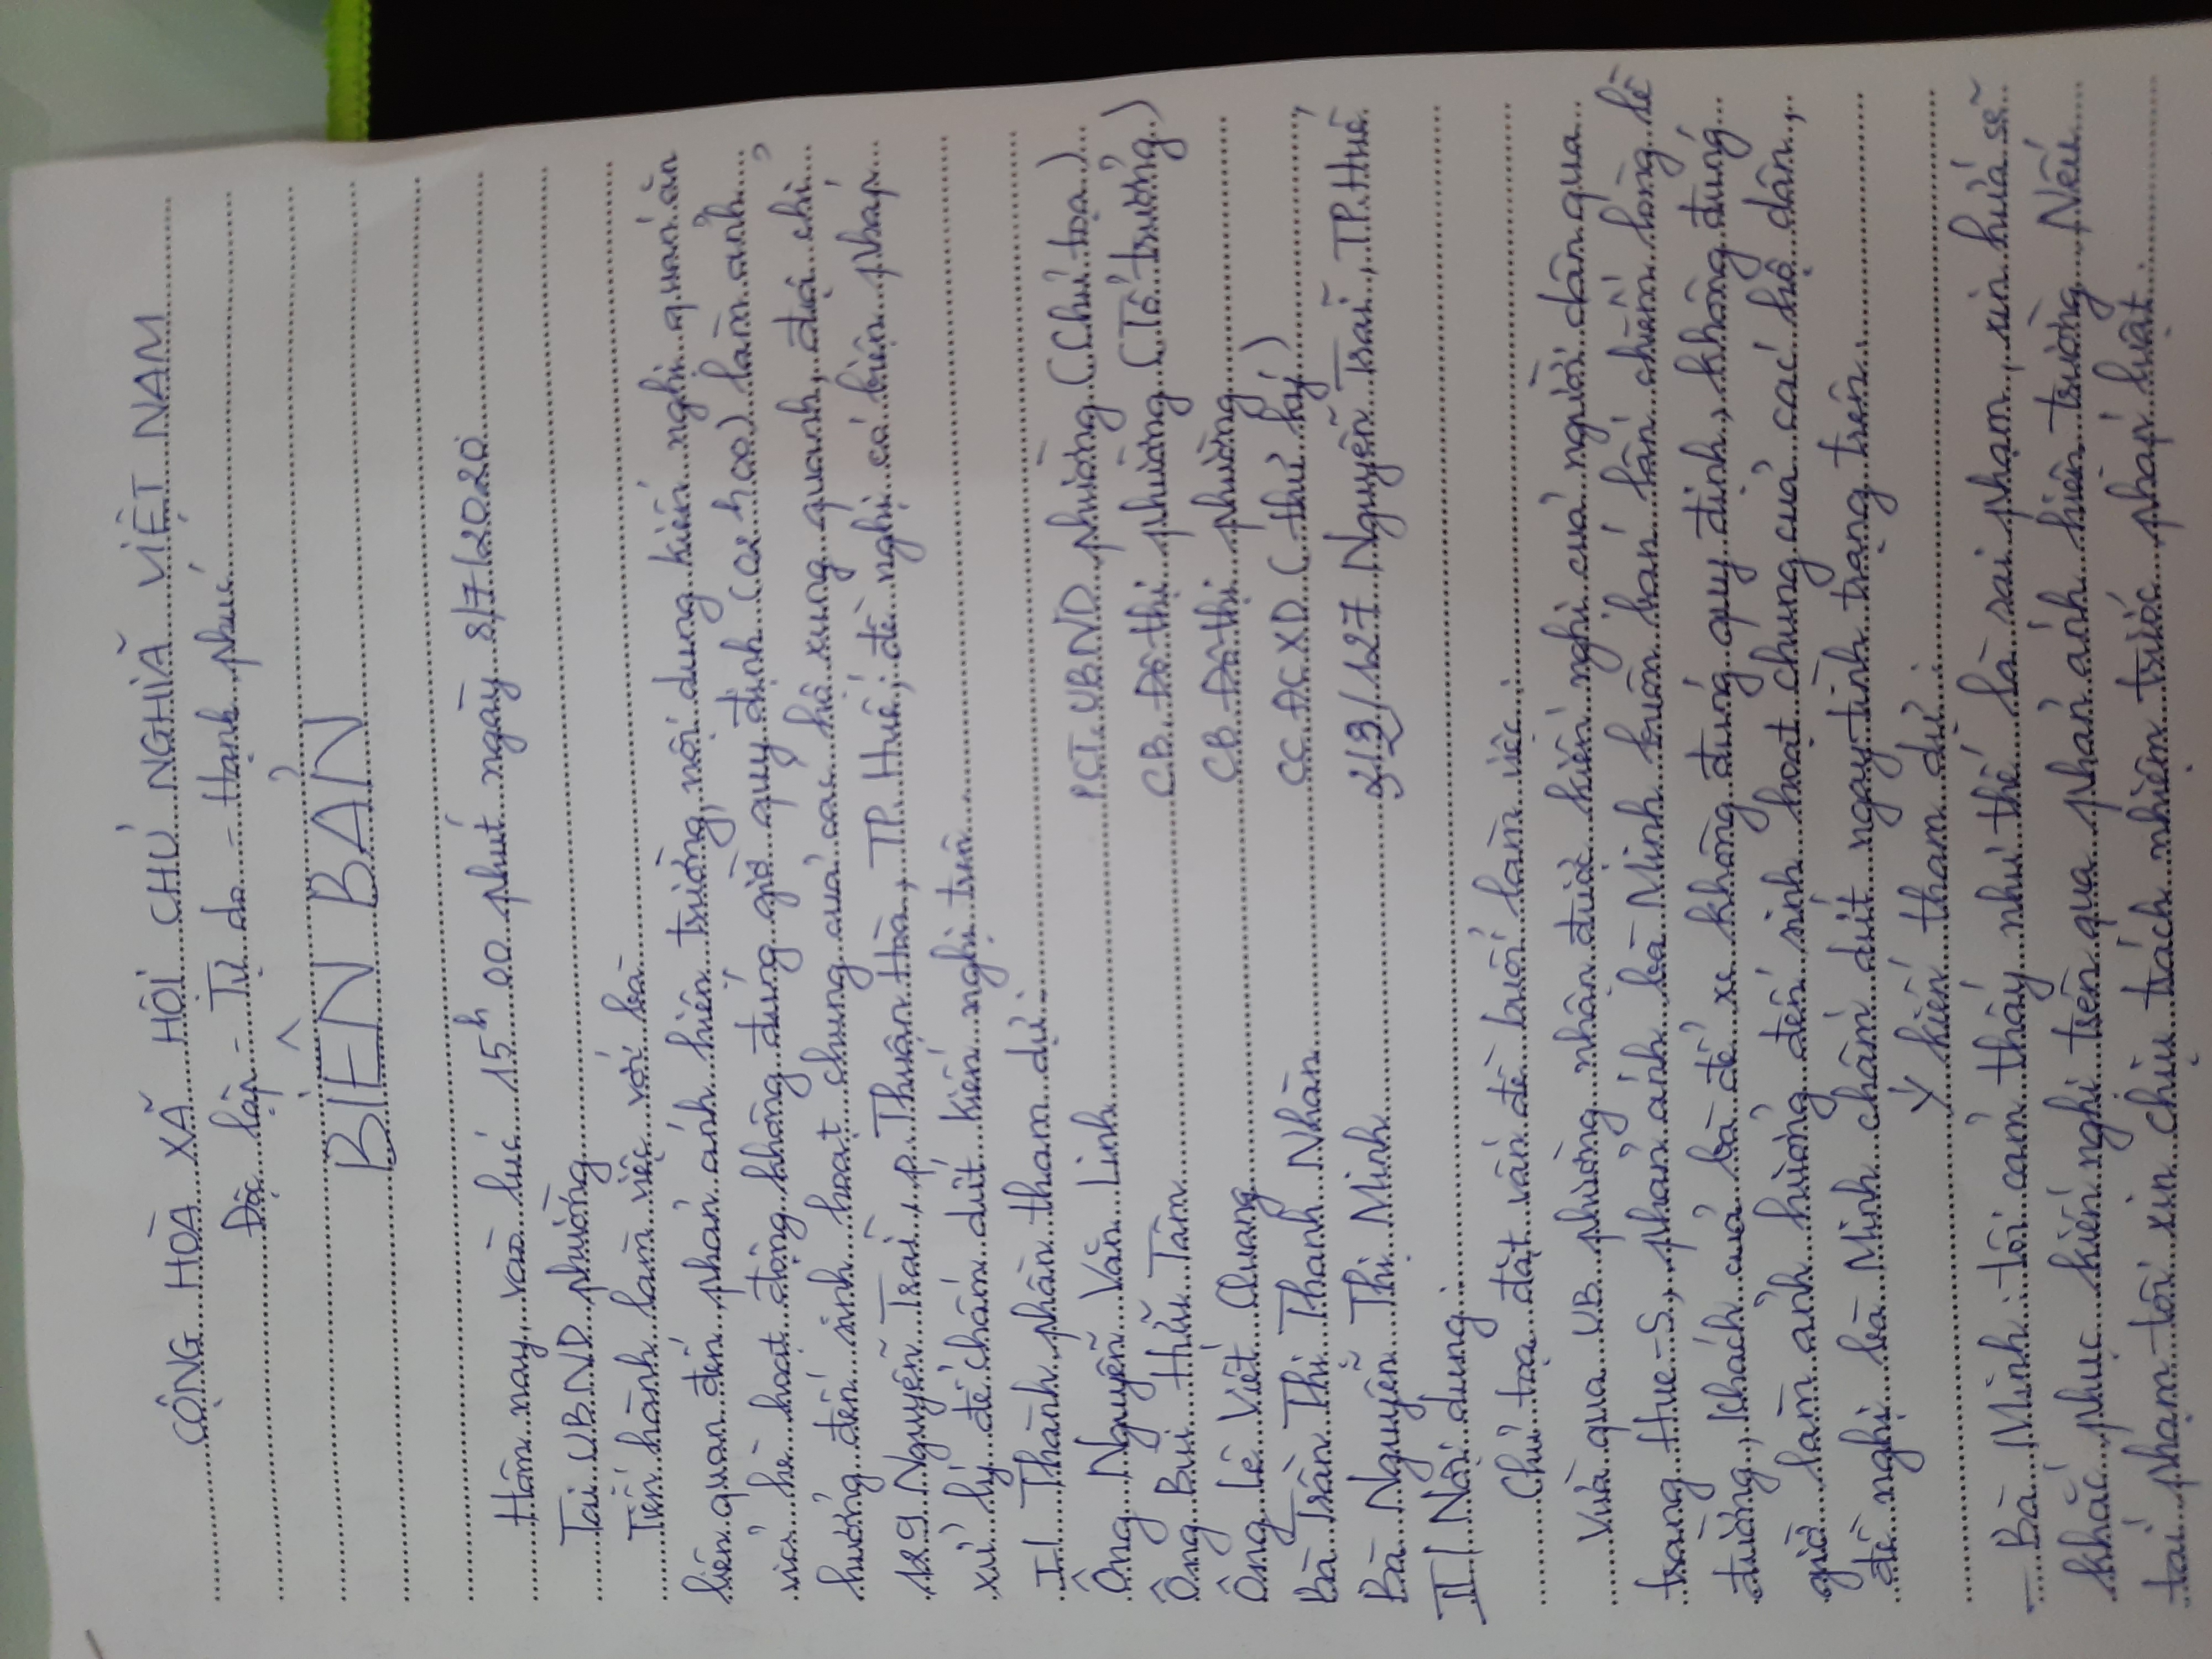 CỘNG HOÀ XÃ HỘI CHỦ NGHĨA VIỆT NAM
Độc lập - Tự do - Hạnh phúc
BIÊN BẢN
Hôm nay, vào lúc 15h 00 phút ngày 8/7/2020
Tại UBND phường
Tiến hành làm việc với bà
liên quan đến phản ánh hiện trường, nội dung kiến nghị quán ăn
vỉa hè hoạt động không đúng giờ quy định (02 h00) làm ảnh
hưởng đến sinh hoạt chung của các hộ xung quanh, địa chỉ
129 Nguyễn Trãi, p. Thuận Hoà, TP. Huế; đề nghị có biện pháp
xử lý để chấm dứt kiến nghị trên
I/ Thành phần tham dự:
Ông Nguyễn Văn Linh PCT. UBND phường (Chủ toạ)
Ông Bùi Hữu Tâm CB. Đô thị phường (Tổ trưởng)
Ông Lê Viết Quang CB. Đô thị phường
Bà Trần Thị Thanh Nhàn CC ĐCXD (thư ký)
Bà Nguyễn Thị Minh 127 Nguyễn Trãi, TP. Huế
II/ Nội dung:
Chủ toạ đặt vấn đề buổi làm việc:
Vừa qua UB phường nhận được kiến nghị của người dân qua
trang Hue-S, phản ánh bà Minh buôn bán lấn chiếm lòng lề
đường, khách của bà để xe không đúng quy định, không đúng
giờ làm ảnh hưởng đến sinh hoạt chung của các hộ dân,
đề nghị bà Minh chấm dứt ngay tình trạng trên.
Ý kiến tham dự:
- Bà Minh: tôi cảm thấy như thế là sai phạm, xin hứa sẽ
khắc phục kiến nghị trên qua phản ánh hiện trường. Nếu
tái phạm tôi xin chịu trách nhiệm trước pháp luật.